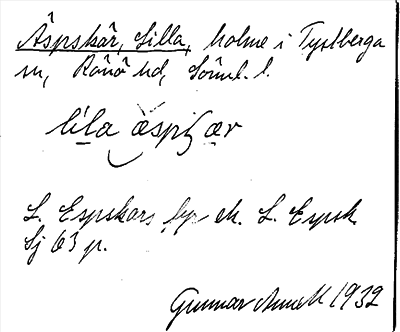 Äspskär, Lilla, holme i Tystberga
sn, Rönö hd, Söml. l.
lila äspʃær
L. Espskärs ek. L. Espsk
Sj 63 p.
Gunnar Annell 1932